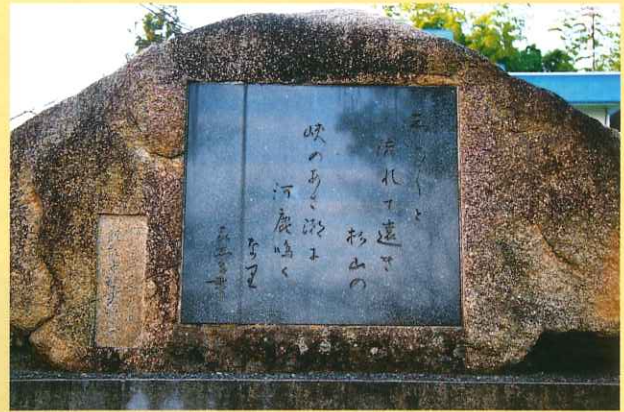 志ら〳〵と
流れて遠き
杉山の
峡のあさ瀬に
河鹿鳴く
なり